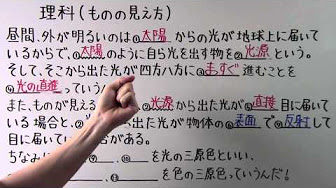 理科(ものの見え方)
昼間、外が明るいのは①太陽からの光が地球上に届いて
いるからで、②太陽のように自ら光を出す物を③光源という。
そして、そこから出た光が四方八方に④まっすぐ進むことを
⑤光の直進っていう
また、ものが見える 光源から出た光が⑦直接目に届いて
いる場合と、 から出た光が物体の⑨表面で⑩反射して
目に届いている 合がある。
ちなみに を光の三原色といい、
を色の三原色っていうんだ!